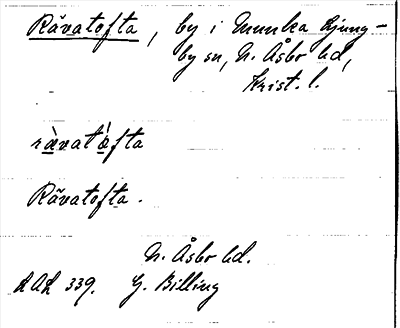 Rävatofta, by i Munka Ljung-
by sn, N. Åsbo hd,
Krist. l.
rä̀vatá̊fta
Rävatofta.
N. Åsbo hd.
339. G. Billing